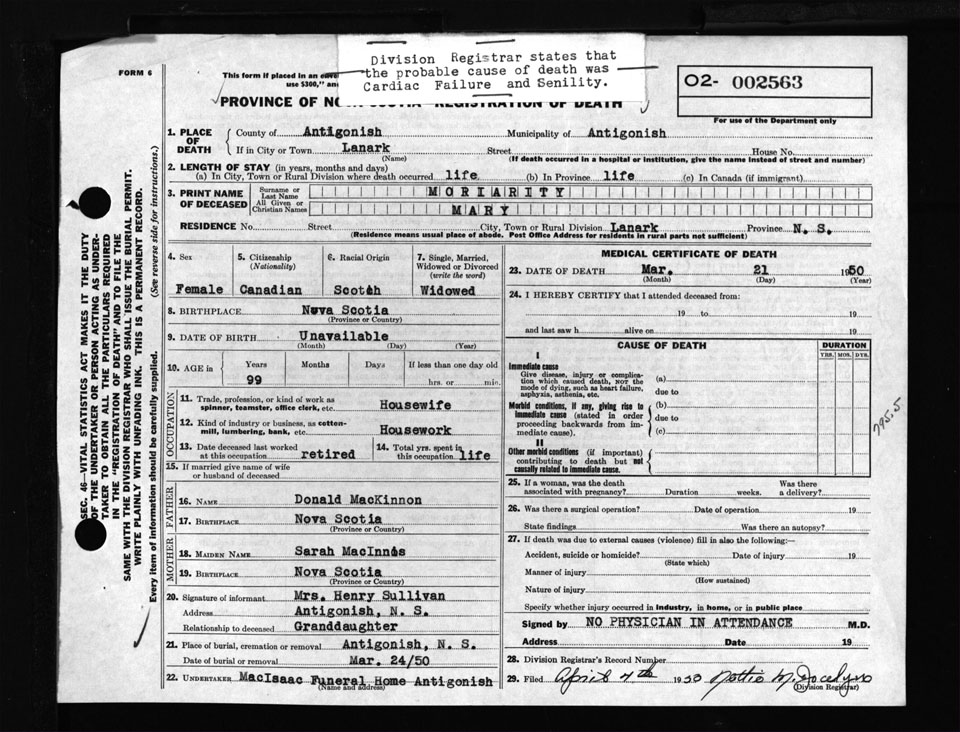 Division Registrar states that
the probable cause of death was
Cardiac Failure and Senility.
FORM 6
This form if placed in an
use $300," an
PROVINCE OF REGISTRATION OF DEATH
O2- 002563
For use of the Department only
1. PLACE OF DEATH County of Antigonish Municipality of Antigonish
If in City or Town Lanark Street House No.
(Name) (If death occurred in a hospital or institution, give the name instead of street and number)
2. LENGTH OF STAY (in years, months and days)
(a) In City, Town or Rural Division where death occurred life (b) In Province life (c) In Canada (if immigrant)
3. PRINT NAME OF DECEASED Surname or Last Name MORIARITY
All Given or Christian Names MARY
RESIDENCE No. Street City, Town or Rural Division Lanark Province N. S.
(Residence means usual place of abode. Post Office Address for residents in rural parts not sufficient)
4. Sex Female
5. Citizenship (Nationality) Canadian
6. Racial Origin Scotch
7. Single, Married, Widowed or Divorced (write the word) Widowed
8. BIRTHPLACE Nova Scotia
(Province or Country)
9. DATE OF BIRTH Unavailable
(Month) (Day) (Year)
10. AGE in Years Months Days If less than one day old
99 hrs. or min.
OCCUPATION
11. Trade, profession, or kind of work as spinner, teamster, office clerk, etc. Housewife
12. Kind of industry or business, as cotton-mill, lumbering, bank, etc. Housework
13. Date deceased last worked at this occupation retired
14. Total yrs. spent in this occupation life
15. If married give name of wife or husband of deceased
FATHER
16. NAME Donald MacKinnon
17. BIRTHPLACE Nova Scotia
(Province or Country)
MOTHER
18. MAIDEN NAME Sarah MacInnes
19. BIRTHPLACE Nova Scotia
(Province or Country)
20. Signature of informant Mrs. Henry Sullivan
Address Antigonish, N. S.
Relationship to deceased Granddaughter
21. Place of burial, cremation or removal Antigonish, N. S.
Date of burial or removal Mar. 24/50
22. UNDERTAKER MacIsaac Funeral Home Antigonish
(Name and address)
MEDICAL CERTIFICATE OF DEATH
23. DATE OF DEATH Mar. 21 1950
(Month) (Day) (Year)
24. I HEREBY CERTIFY that I attended deceased from:
19 to 19
and last saw h alive on 19
CAUSE OF DEATH DURATION
YRS. MOS. DYS.
I
Immediate cause
Give disease, injury or complication which caused death, NOT the mode of dying, such as heart failure, asphyxia, asthenia, etc.
(a)
due to
Morbid conditions, if any, giving rise to immediate cause (stated in order proceeding backwards from immediate cause).
(b)
due to
(c)
II
Other morbid conditions (if important) contributing to death but not causally related to immediate cause.
795.5
25. If a woman, was the death associated with pregnancy? Duration weeks. Was there a delivery?
26. Was there a surgical operation? Date of operation 19
State findings Was there an autopsy?
27. If death was due to external causes (violence) fill in also the following:—
Accident, suicide or homicide? Date of injury 19
(State which)
Manner of injury
(How sustained)
Nature of injury
Specify whether injury occurred in industry, in home, or in public place
Signed by NO PHYSICIAN IN ATTENDANCE M.D.
Address Date 19
28. Division Registrar's Record Number
29. Filed April 7th 1950
(Division Registrar)
SEC. 46—VITAL STATISTICS ACT MAKES IT THE DUTY
OF THE UNDERTAKER OR PERSON ACTING AS UNDER-
TAKER TO OBTAIN ALL THE PARTICULARS REQUIRED
IN THE "REGISTRATION OF DEATH" AND TO FILE THE
SAME WITH THE DIVISION REGISTRAR WHO SHALL ISSUE THE BURIAL PERMIT.
WRITE PLAINLY WITH UNFADING INK. THIS IS A PERMANENT RECORD.
Every item of information should be carefully supplied. (See reverse side for instructions.)